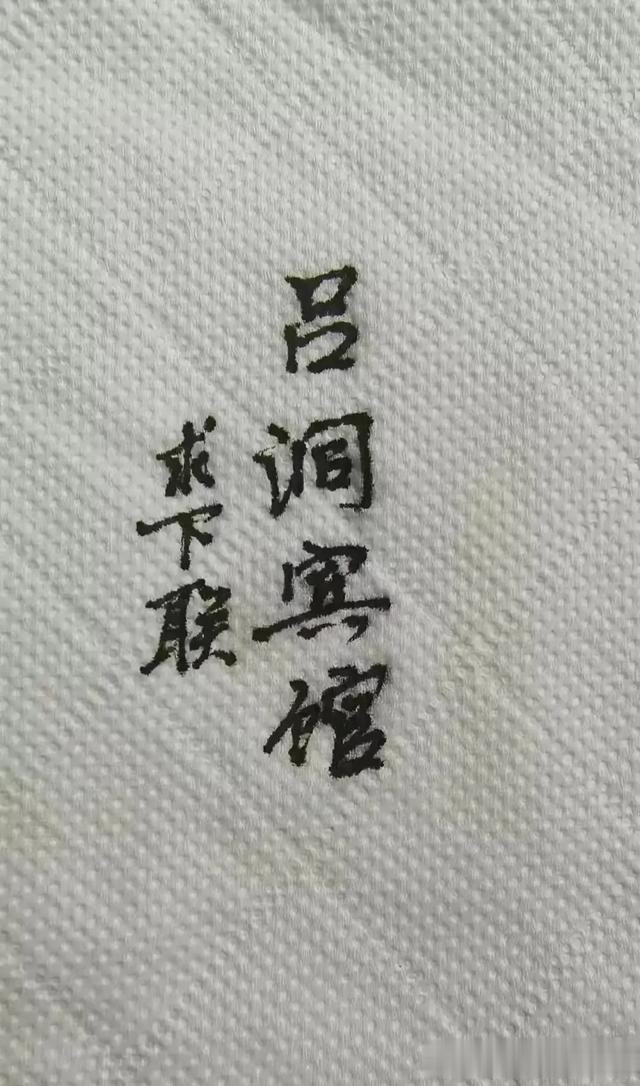 吕洞宾馆
求下联